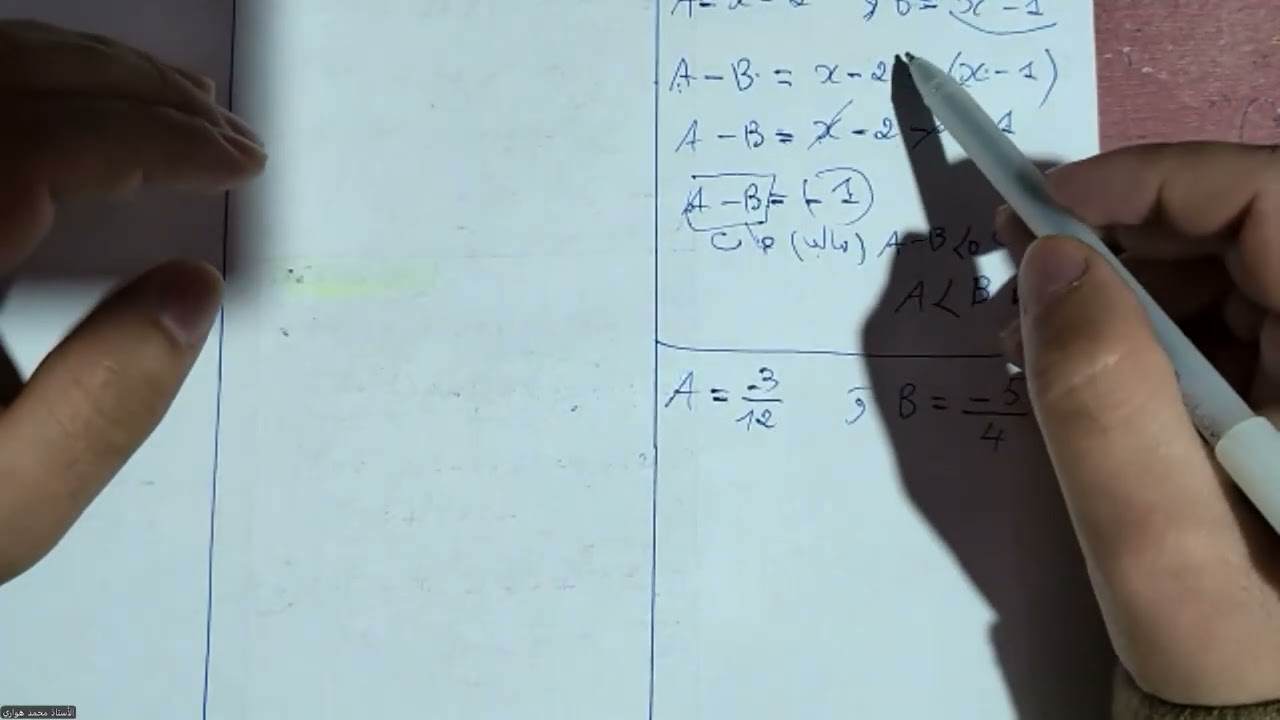 A - B = x - 2 (x - 1)
A - B = x - 2 - x 1
A - B = (-1)
(سالب) A - B < 0
A < B
A = -3/12 و B = -5/4
الأستاذ محمد هواري